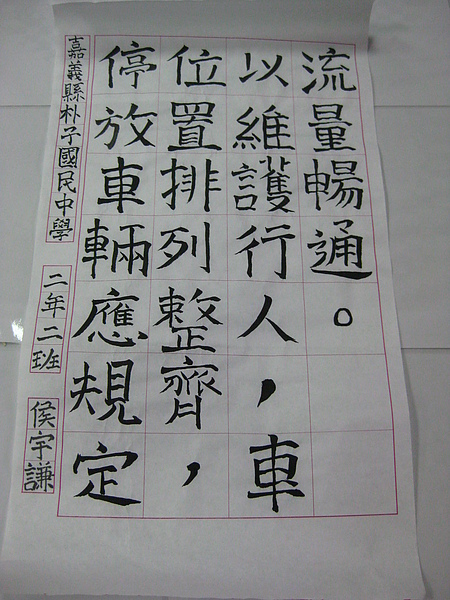 嘉義縣朴子國民中學 二年二班 侯宇謙
停放車輛應規定
位置排列整齊，
以維護行人，車
流量暢通。